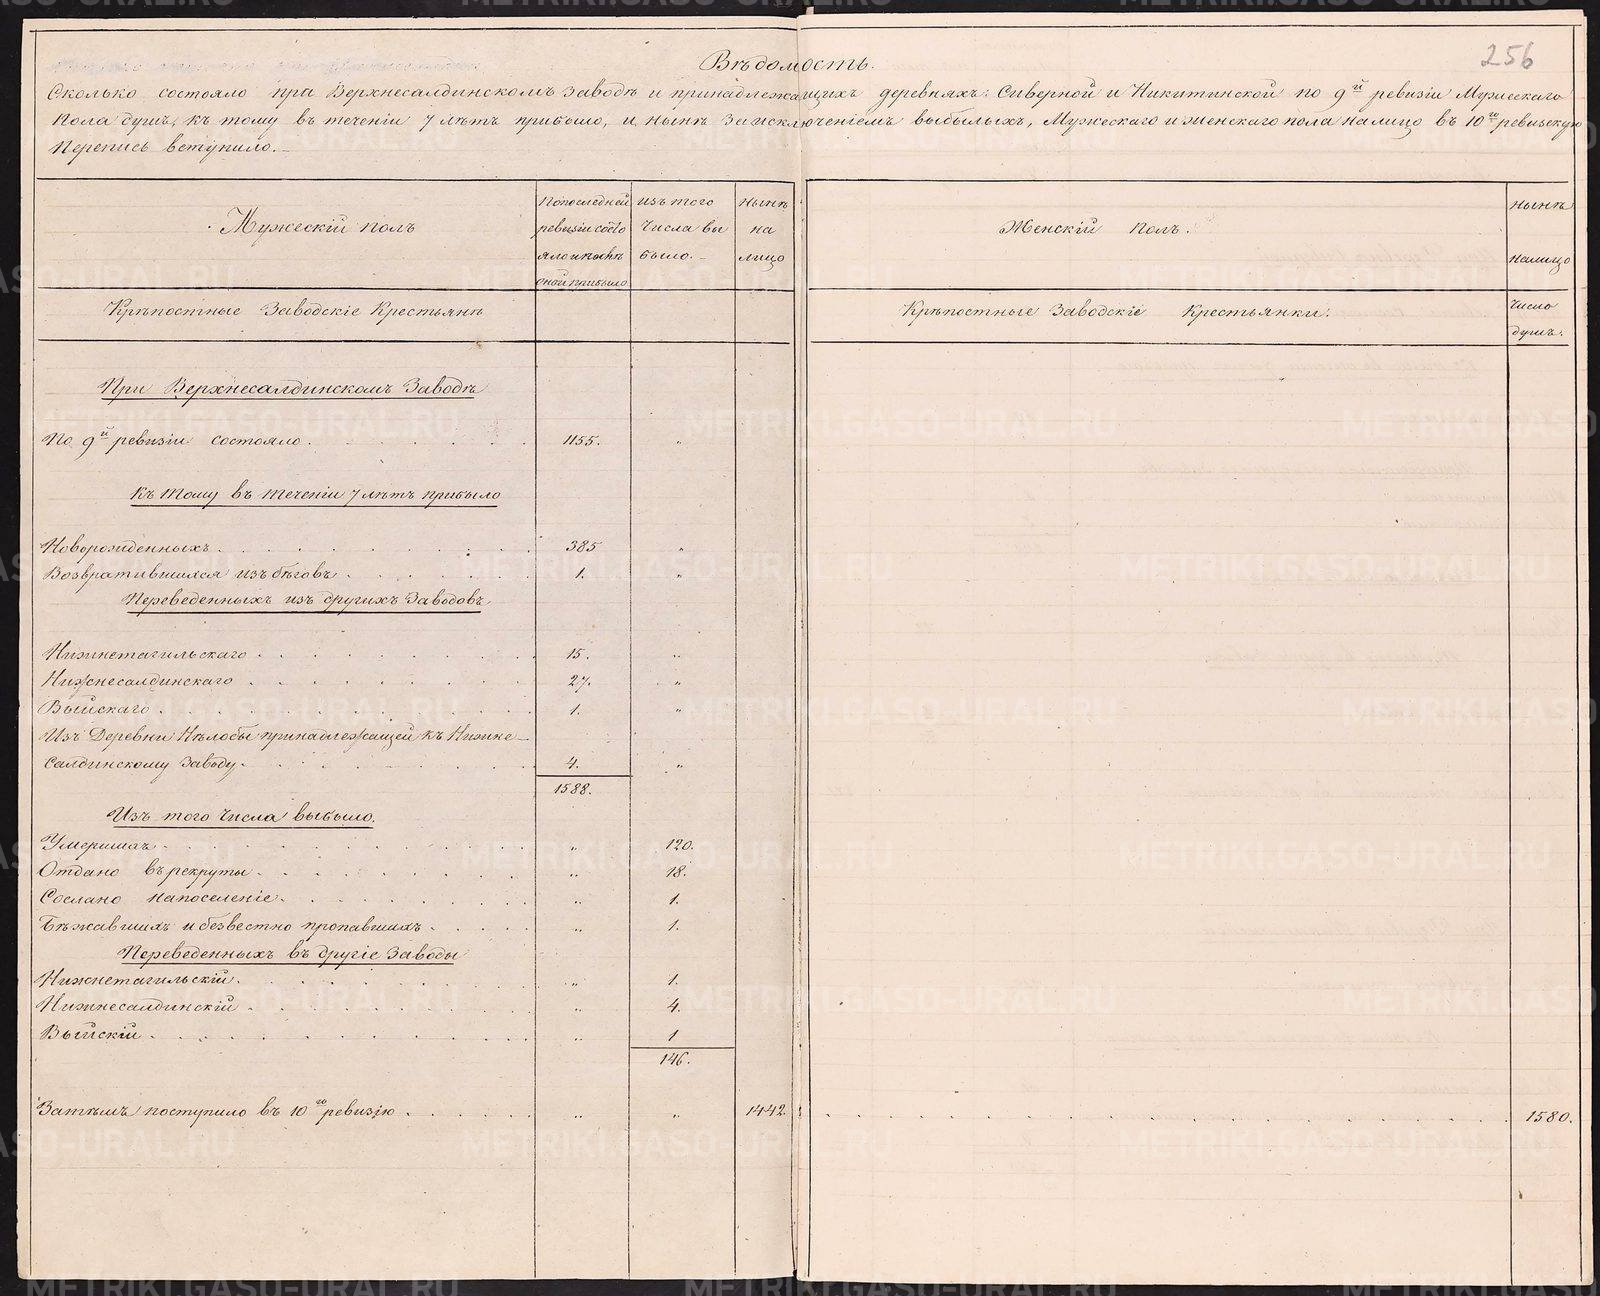 256
Вѣдомость.
Сколько состояло при Верхнесалдинскомъ заводѣ и принадлежащихъ деревняхъ: Сиверной и Никитинской по 9й ревизіи Мужескаго
Пола душъ, къ тому въ теченіи 7 лѣтъ прибыло, и нынѣ заисключеніемъ выбылыхъ, Мужескаго и женскаго пола налицо въ 10ю ревизскую
Перепись вступило.
Мужескій полъ
Попоследней
ревизіи состо
ало и послѣ
оной прибыло
изъ того
числа вы
было.
нынѣ
на
лицо
Женскій полъ.
нынѣ
налицо
Крѣпостные Заводскіе Крестьянѣ
Крѣпостные Заводскіе Крестьянки:
Число
душъ.
При Верхнесалдинскомъ Заводѣ
По 9й ревизіи состояло. 1155. "
Къ тому въ теченіи 7 лѣтъ прибыло
Новорожденныхъ. 385 "
Возвратившихся изъ бѣговъ. 1. "
Переведенныхъ изъ другихъ Заводовъ
Нижнетагильскаго. 15. "
Нижнесалдинскаго 27. "
Выйскаго. 1. "
Изъ Деревни Нѣлобы принадлежащей къ Нижне-
салдинскому заводу. 4. "
1588.
Изъ того Числа выбыло.
Умершихъ. " 120.
Отдано въ рекруты. " 18.
Сослано напоселеніе. " 1.
Бѣжавшихъ и безвестно пропавшихъ. " 1.
Переведенныхъ въ другіе Заводы
Нижнетагильскій. " 1.
Нижнесалдинскій " 4.
Выйскій. " 1
146.
Затѣмъ поступило въ 10ю ревизію. " " 1442 1580.
METRIKI.GASO-URAL.RU